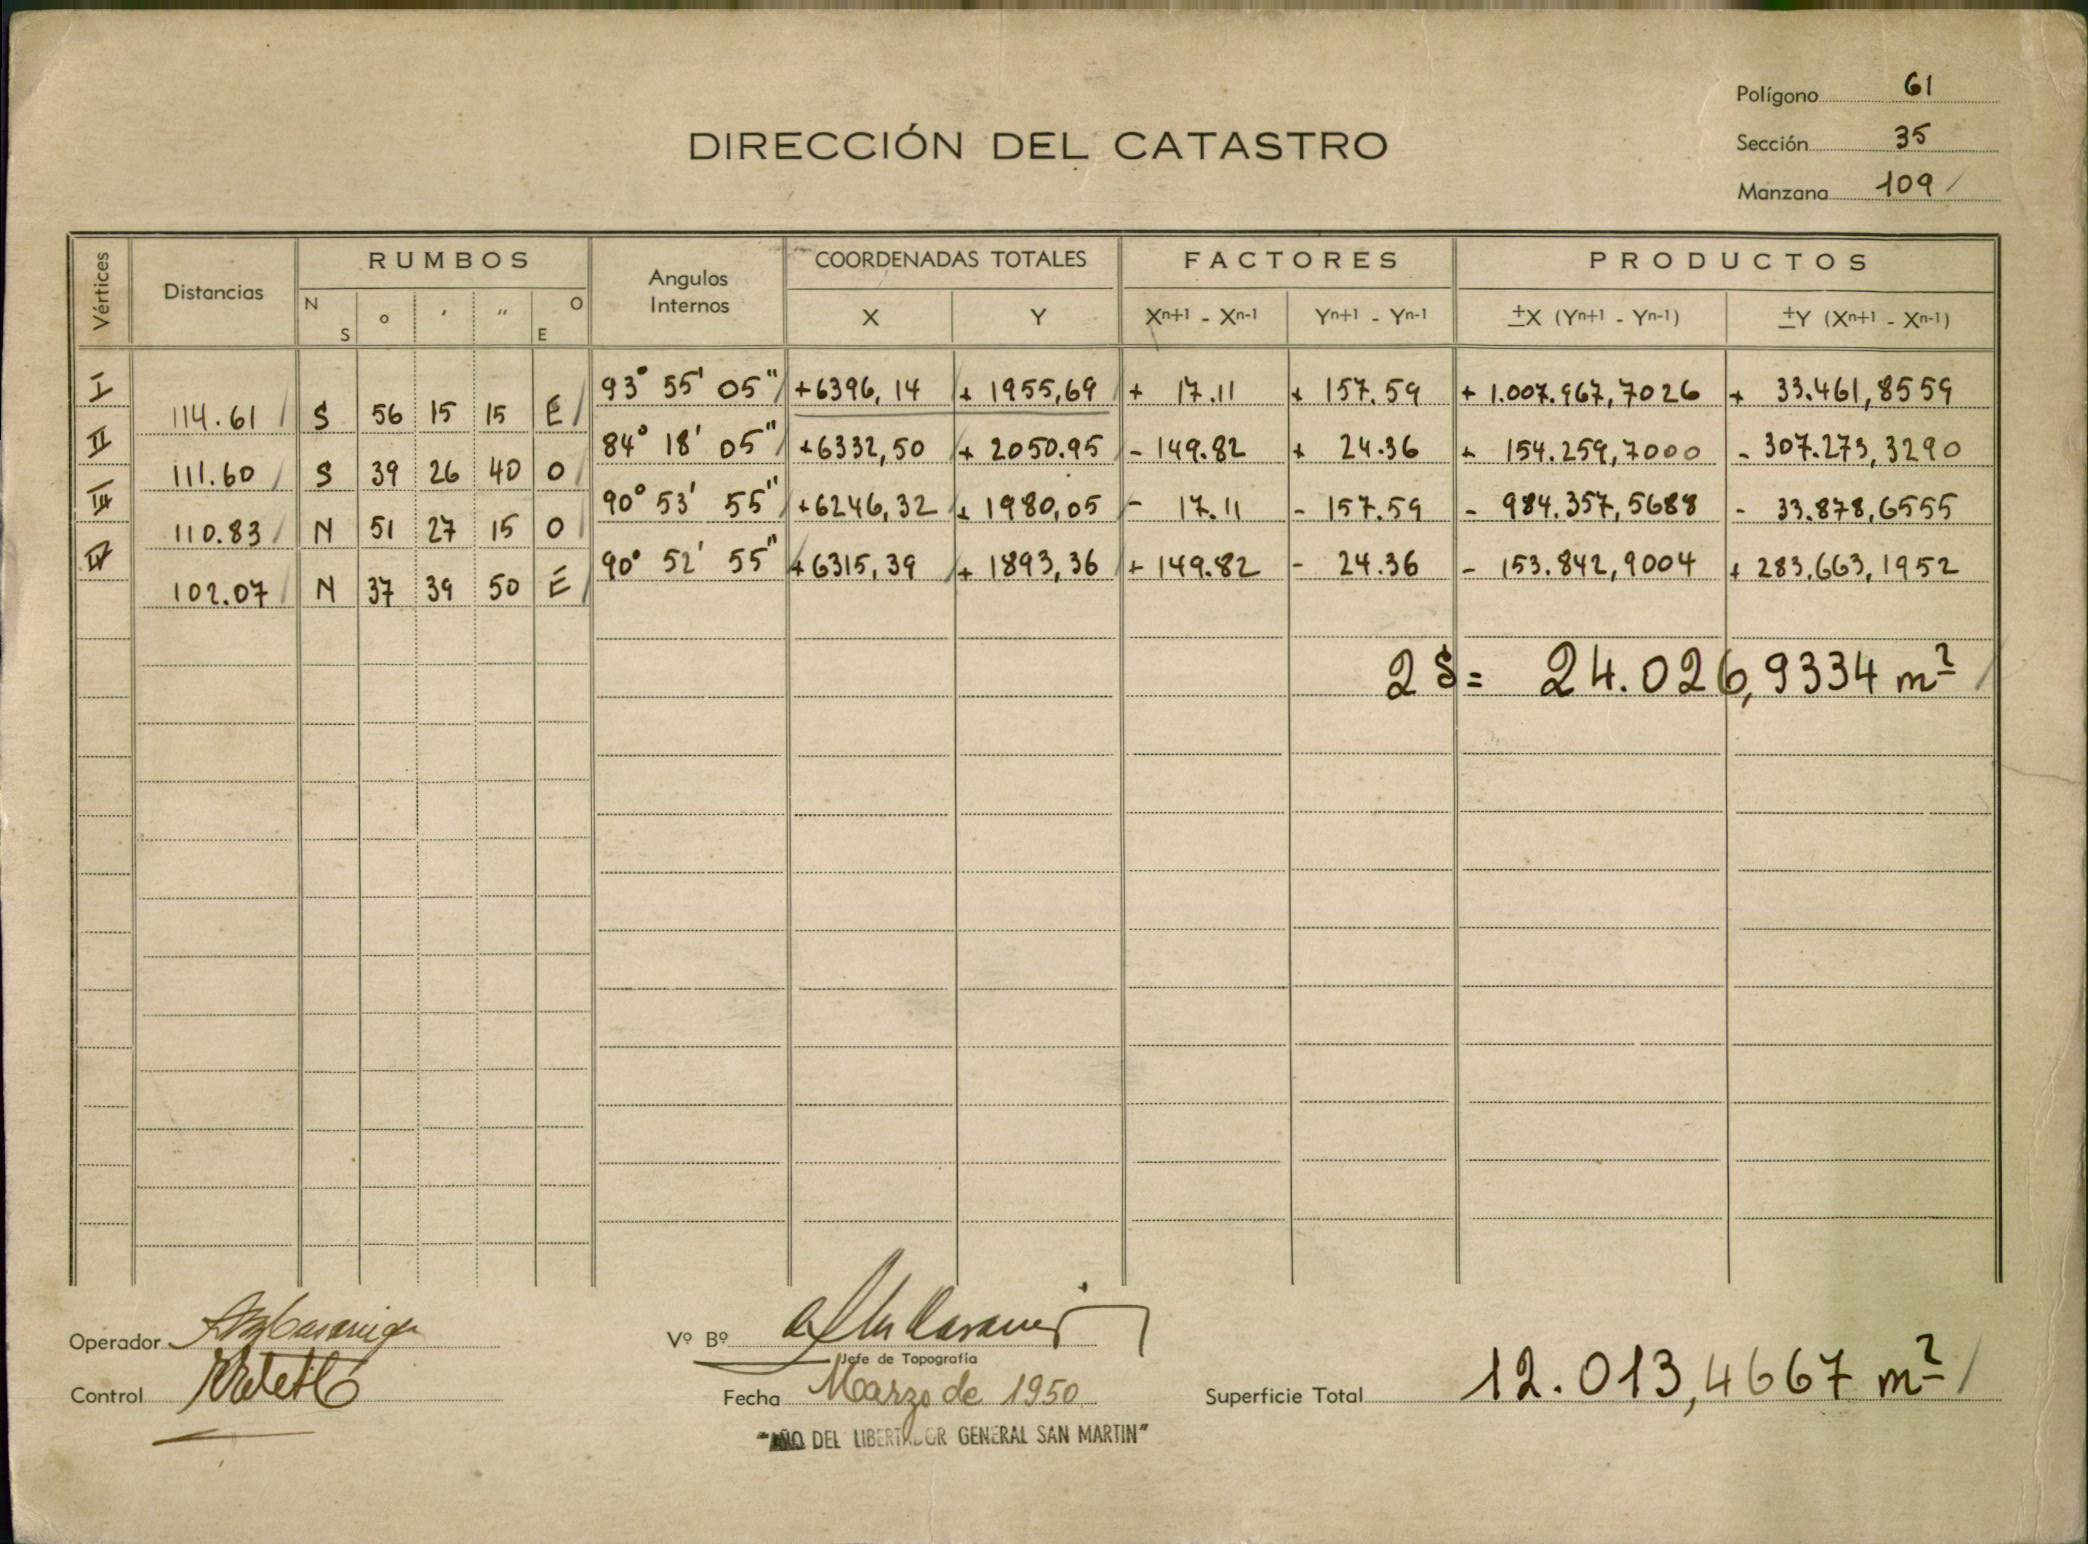 Polígono 61
DIRECCIÓN DEL CATASTRO
Sección 35
Manzana 109
Vértices Distancias RUMBOS Angulos Internos COORDENADAS TOTALES FACTORES PRODUCTOS
N S ° ' " O E X Y Xn+1 - Xn-1 Yn+1 - Yn-1 ±X (Yn+1 - Yn-1) ±Y (Xn+1 - Xn-1)
I 93° 55' 05" +6396,14 + 1955,69 + 17.11 + 157.59 + 1.007.967,7026 + 33.461,8559
114.61 S 56 15 15 E
II 84° 18' 05" +6332,50 + 2050.95 - 149.82 + 24.36 + 154.259,7000 - 307.273,3290
111.60 S 39 26 40 O
III 90° 53' 55" +6246,32 + 1980,05 - 17.11 - 157.59 - 984.357,5688 - 33.878,6555
110.83 N 51 27 15 O
IV 90° 52' 55" +6315,39 + 1893,36 + 149.82 - 24.36 - 153.842,9004 + 283.663,1952
102.07 N 37 39 50 E
2S= 24.026,9334 m²
Operador
Vº Bº
Jefe de Topografía
Control
Fecha Marzo de 1950
Superficie Total 12.013,4667 m²
"AÑO DEL LIBERTADOR GENERAL SAN MARTIN"